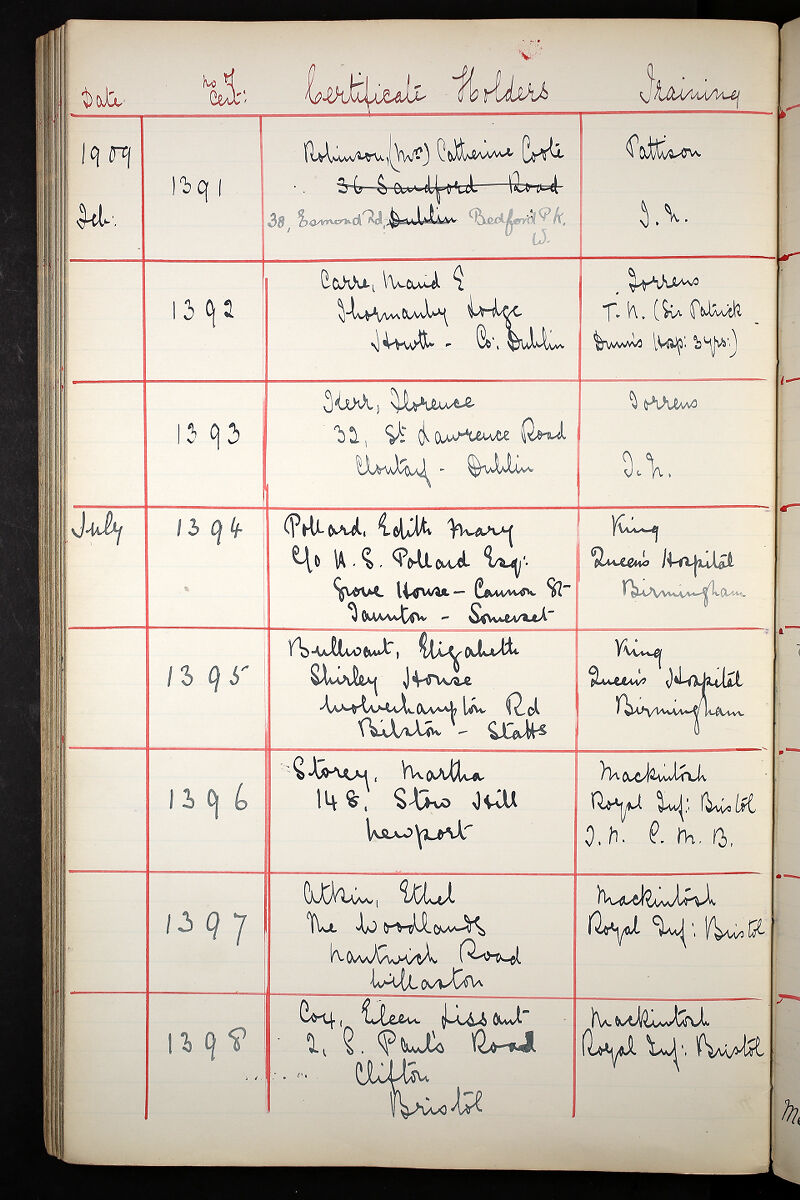 Date no of Cert: Certificate Holders Training
1909 1391 Robinson, (Mrs) Catherine Coote Pattison
36 Sandford Road
Feb: 38, Esmond Rd, Dublin Bedford Pk. T. N.
W.
Carre, Maud E Torrens
1392 Thormanby Lodge T. N. (Sir Patrick
Howth - Co: Dublin Dun's Hosp: 3 yrs:)
Kerr, Florence Torrens
1393 32, St Lawrence Road
Clontarf - Dublin T. N.
July 1394 Pollard, Edith Mary King
C/o H. S. Pollard Esq: Queen's Hospital
Grove House - Cannon St Birmingham
Taunton - Somerset
Bullivant, Elizabeth King
1395 Shirley House Queen's Hospital
Wolverhampton Rd Birmingham
Bilston - Staffs
Storey, Martha Mackintosh
1396 148, Stow Hill Royal Inf: Bristol
Newport T. N. C. M. B.
Atkin, Ethel Mackintosh
1397 The Woodlands Royal Inf: Bristol
Nantwich Road
Willaston
Cox, Eileen Lissant Mackintosh
1398 2, S. Paul's Road Royal Inf: Bristol
Clifton
Bristol